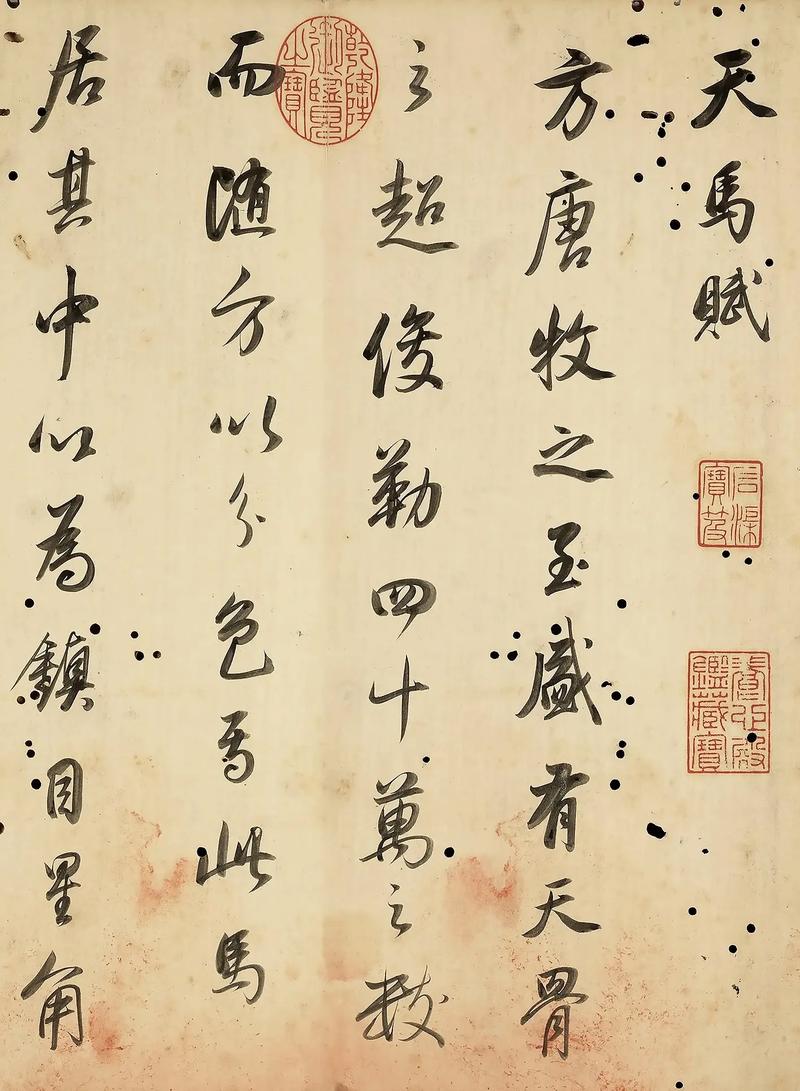 天馬賦
石渠寶笈
養心殿鑑藏寶
方唐牧之至盛有天骨
之超俊勒四十萬之數
乾隆御覽之寶
而随方以分色焉此馬
居其中以為鎮目星角